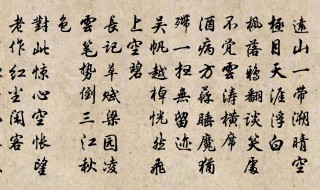 遠山一帶溯晴空
極目天涯浮白
楓落雲鴉翻談笑處
不覺雲濤橫席
酒病方蘇睡魔猶
殢一掃無留迹
吳帆越棹恍然飛
上空碧
長記草賦梁園凌
雲筆勢倒三江秋
色
對此驚心空悵望
老作紅塵閑客